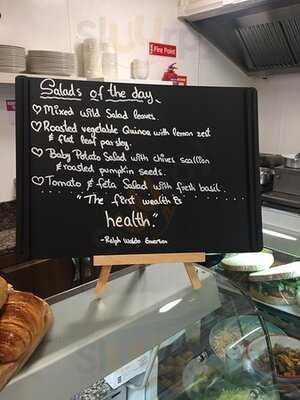 Fire Point
Salads of the day
♡ Mixed wild Salad leaves.
♡ Roasted vegetable Quinoa with lemon zest
& flat leaf parsley.
♡ Baby Potato Salad with chives scallion
& roasted pumpkin seeds.
♡ Tomato & feta Salad with fresh basil.
"The first wealth is
health."
- Ralph Waldo Emerson